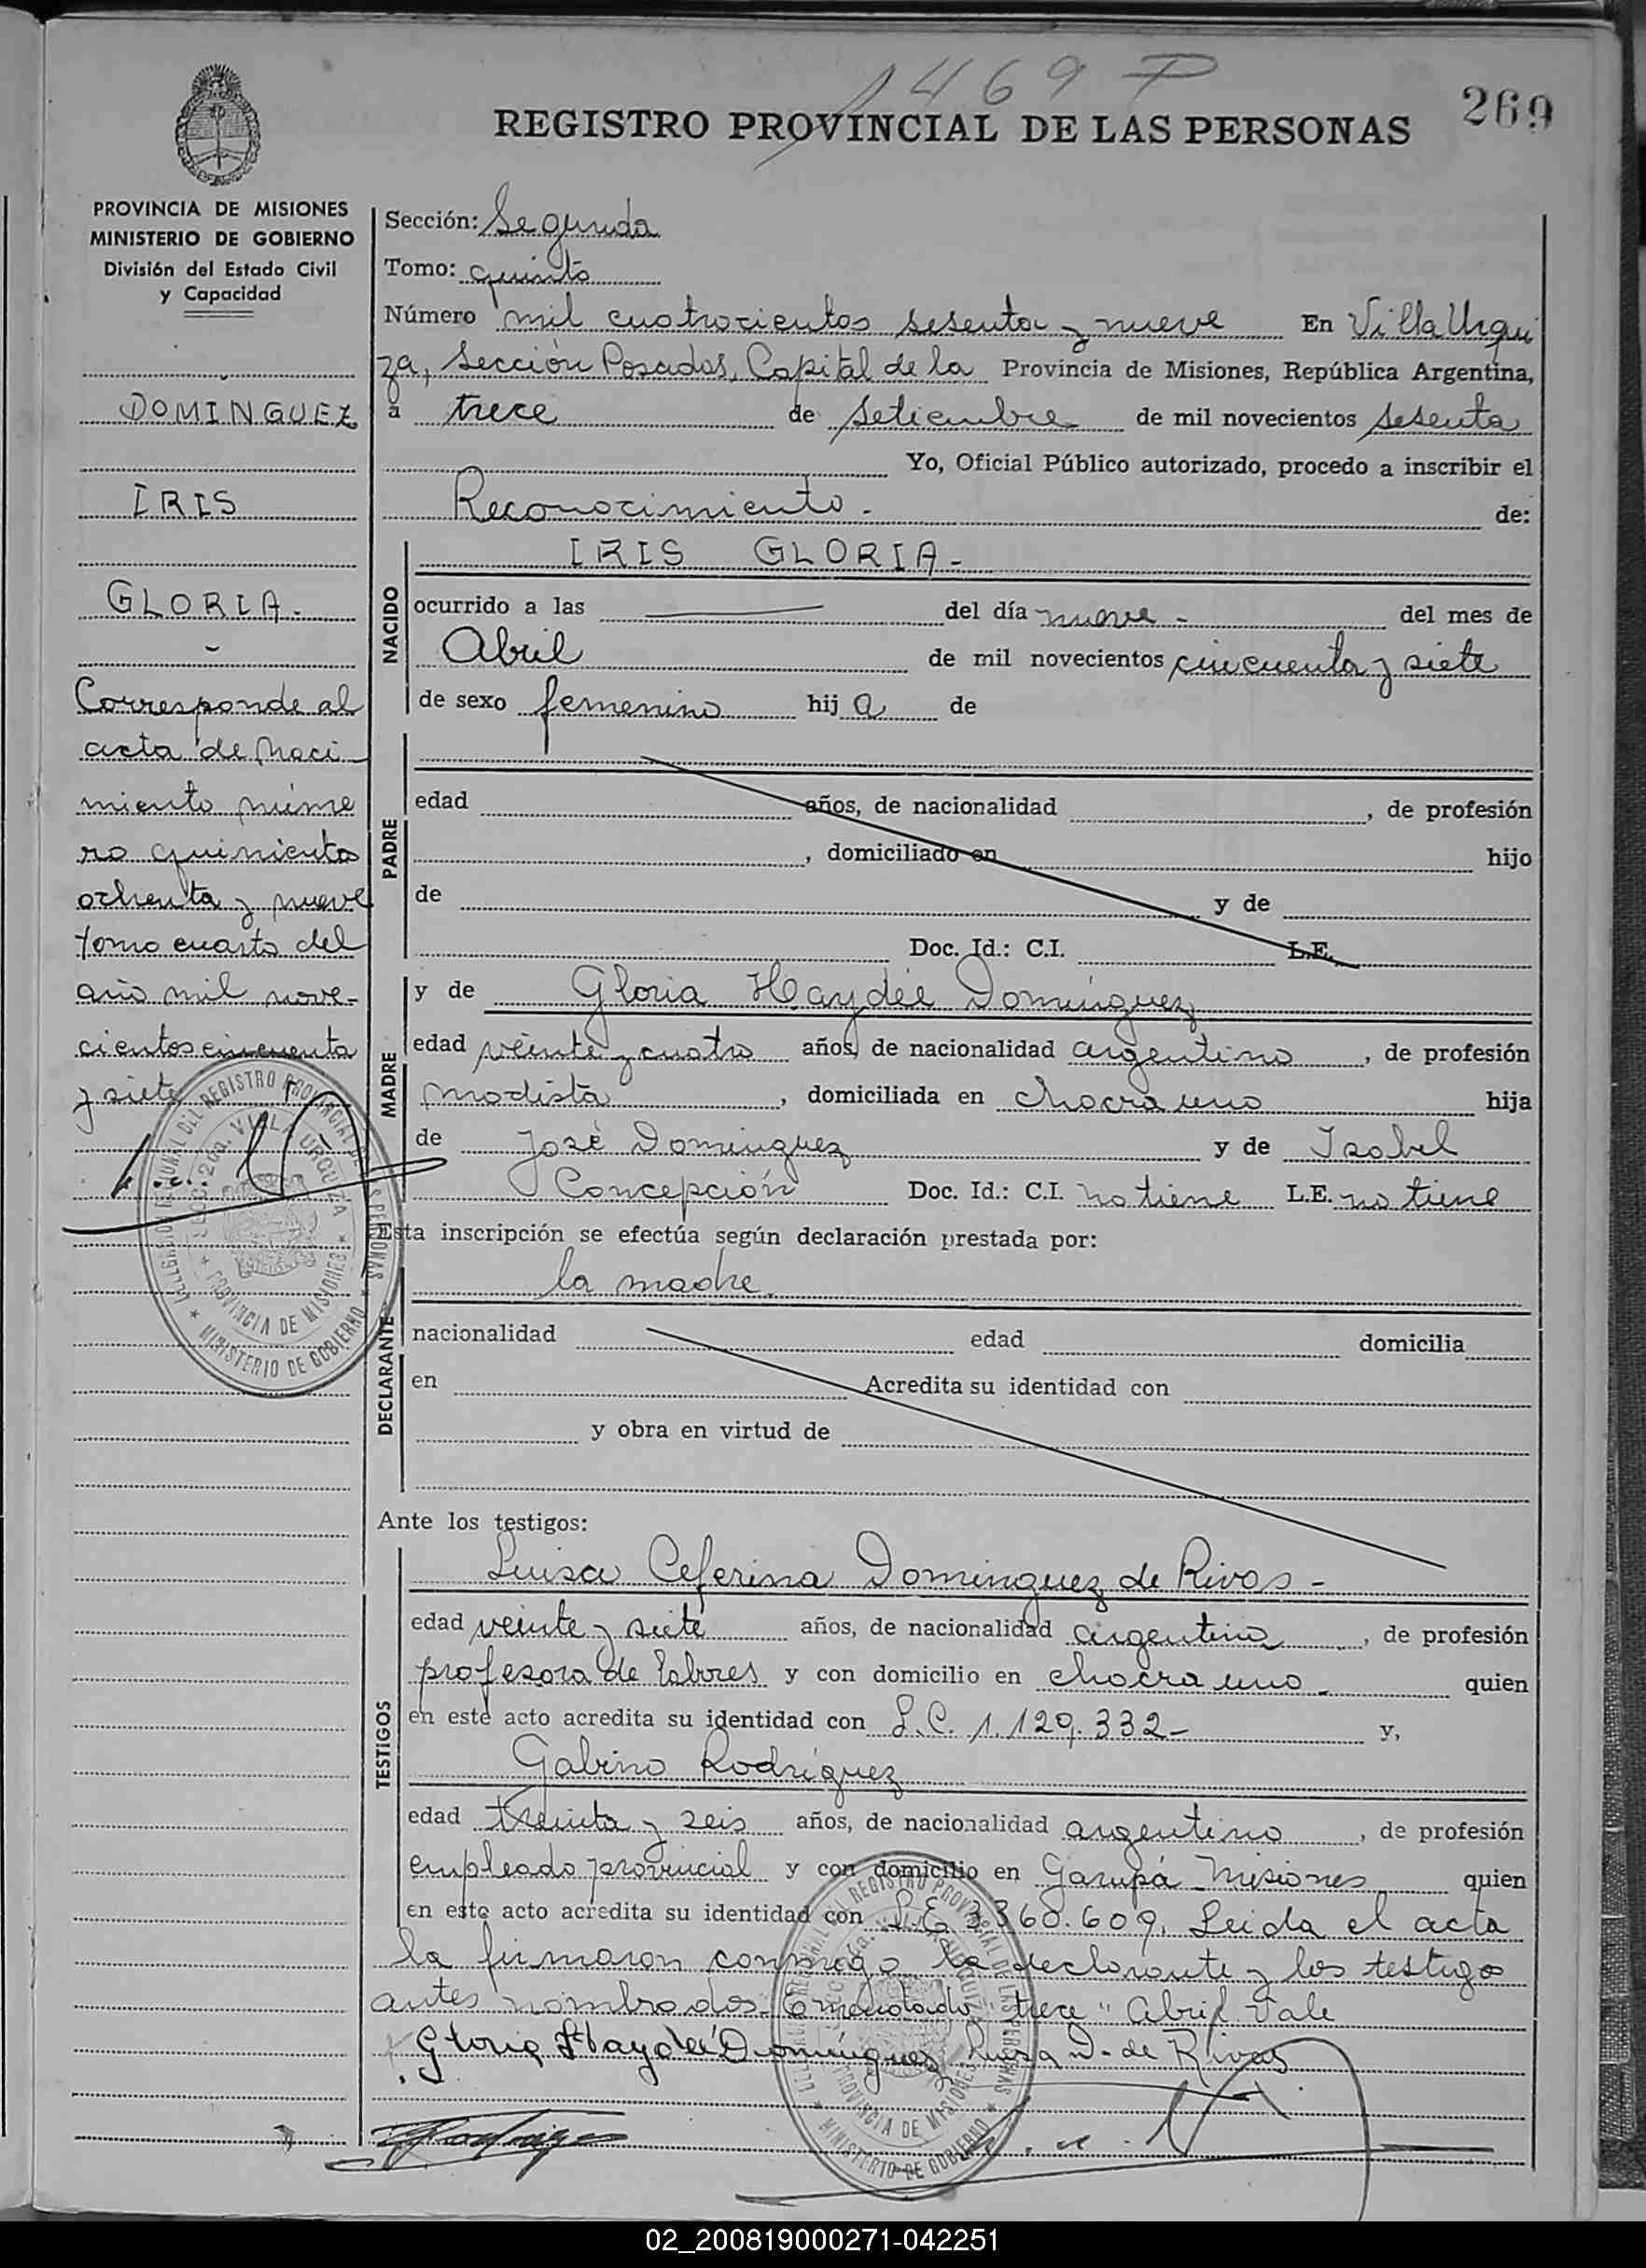 1469 P
REGISTRO PROVINCIAL DE LAS PERSONAS
269
PROVINCIA DE MISIONES
MINISTERIO DE GOBIERNO
División del Estado Civil
y Capacidad
DOMINGUEZ
IRIS
GLORIA.-
Corresponde al
acta de naci
miento núme
ro quinientos
ochenta y nueve
tomo cuarto del
año mil nove-
cientos cincuenta
y siete
Sección: Segunda
Tomo: quinto
Número mil cuatrocientos sesenta y nueve En Villa Urqui
za, Sección Posadas, Capital de la Provincia de Misiones, República Argentina,
a trece de setiembre de mil novecientos sesenta
Yo, Oficial Público autorizado, procedo a inscribir el
Reconocimiento.- de:
NACIDO
IRIS GLORIA.-
ocurrido a las del día nueve.- del mes de
Abril de mil novecientos cincuenta y siete
de sexo femenino hija de
PADRE
edad años, de nacionalidad , de profesión
, domiciliado en hijo
de y de
Doc. Id.: C.I. L.E.
MADRE
y de Gloria Haydée Domínguez
edad veinte y cuatro años, de nacionalidad argentina, de profesión
modista, domiciliada en chacra uno hija
de José Domínguez y de Isabel
Concepción Doc. Id.: C.I. no tiene L.E. no tiene
Esta inscripción se efectúa según declaración prestada por:
DECLARANTE
la madre.
nacionalidad edad domicilia
en Acredita su identidad con
y obra en virtud de
Ante los testigos:
TESTIGOS
Luisa Ceferina Dominguez de Rivas -
edad veinte y siete años, de nacionalidad argentina, de profesión
profesora de labores y con domicilio en chacra uno.- quien
en este acto acredita su identidad con L.C. 1.129.332- y,
Gabino Rodríguez
edad treinta y seis años, de nacionalidad argentino, de profesión
empleado provincial y con domicilio en Garupá Misiones quien
en este acto acredita su identidad con L.E. 3360.609. Leida el acta
la firmaron conmigo la declarante y los testigos
antes nombrados. Enmendado "trece" Abril Vale
Gloria Haydeé Domínguez Luisa D. de Rivas
DELEGACION REGIONAL DEL REGISTRO PROVINCIAL DE LAS PERSONAS
SECC. 2da. VILLA URQUIZA
PROVINCIA DE MISIONES
MINISTERIO DE GOBIERNO
02_200819000271-042251